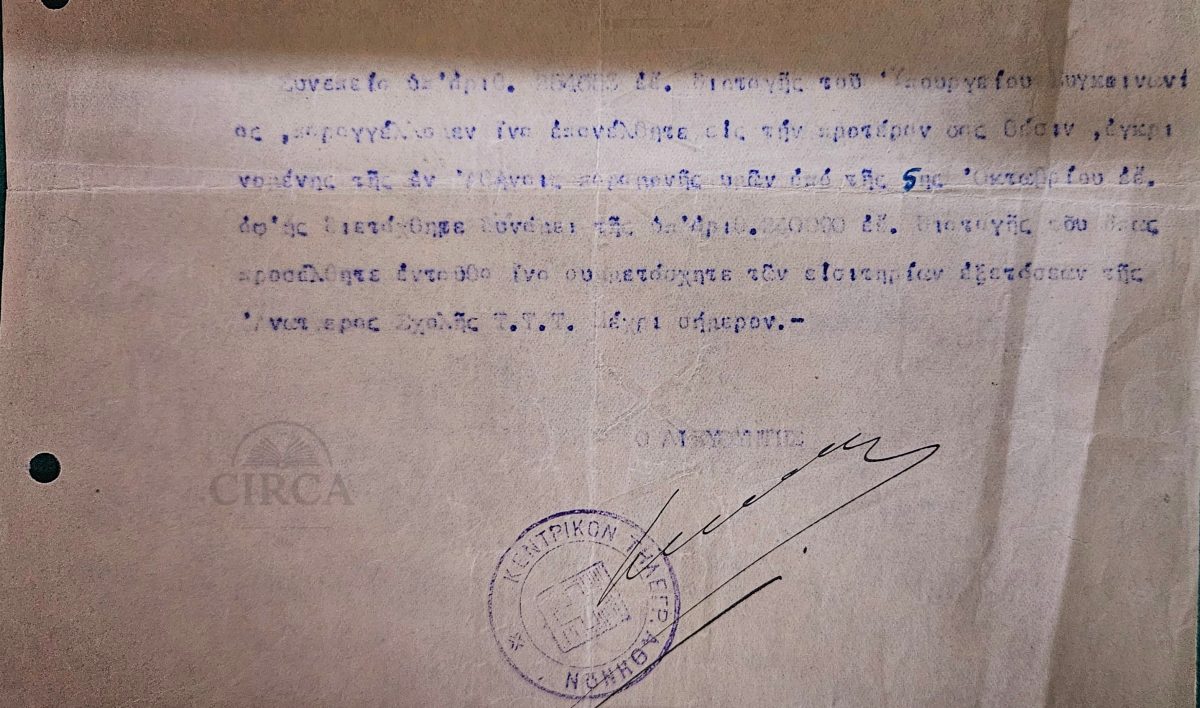 Συνεπεία ὑπ'ἀριθ. ἐ.ἔ. διαταγῆς τοῦ Ὑπουργείου Συγκοινωνί
ας ,παραγγέλλομεν ἵνα ἐπανέλθητε εἰς τήν προτέραν σας θέσιν ,ἐγκρι
νομένης τῆς ἐν Ἀθήναις παραμονῆς ὑμῶν ἀπό τῆς 5ης Ὀκτωβρίου ἐ.ἔ.
ἀφ'ἧς διετάχθητε δυνάμει τῆς ὑπ'ἀριθ. ἐ.ἔ. διαταγῆς του ὅπως
προσέλθητε ἐνταῦθα ἵνα συμμετάσχητε τῶν εἰσιτηρίων ἐξετάσεων τῆς
Ἀνωτέρας Σχολῆς Τ.Τ.Τ. μέχρι σήμερον.-
Ο ΔΙΕΥΘΥΝΤΗΣ
CIRCA
ΚΕΝΤΡΙΚΟΝ ΤΗΛΕΓΡ. ΑΘΗΝΩΝ